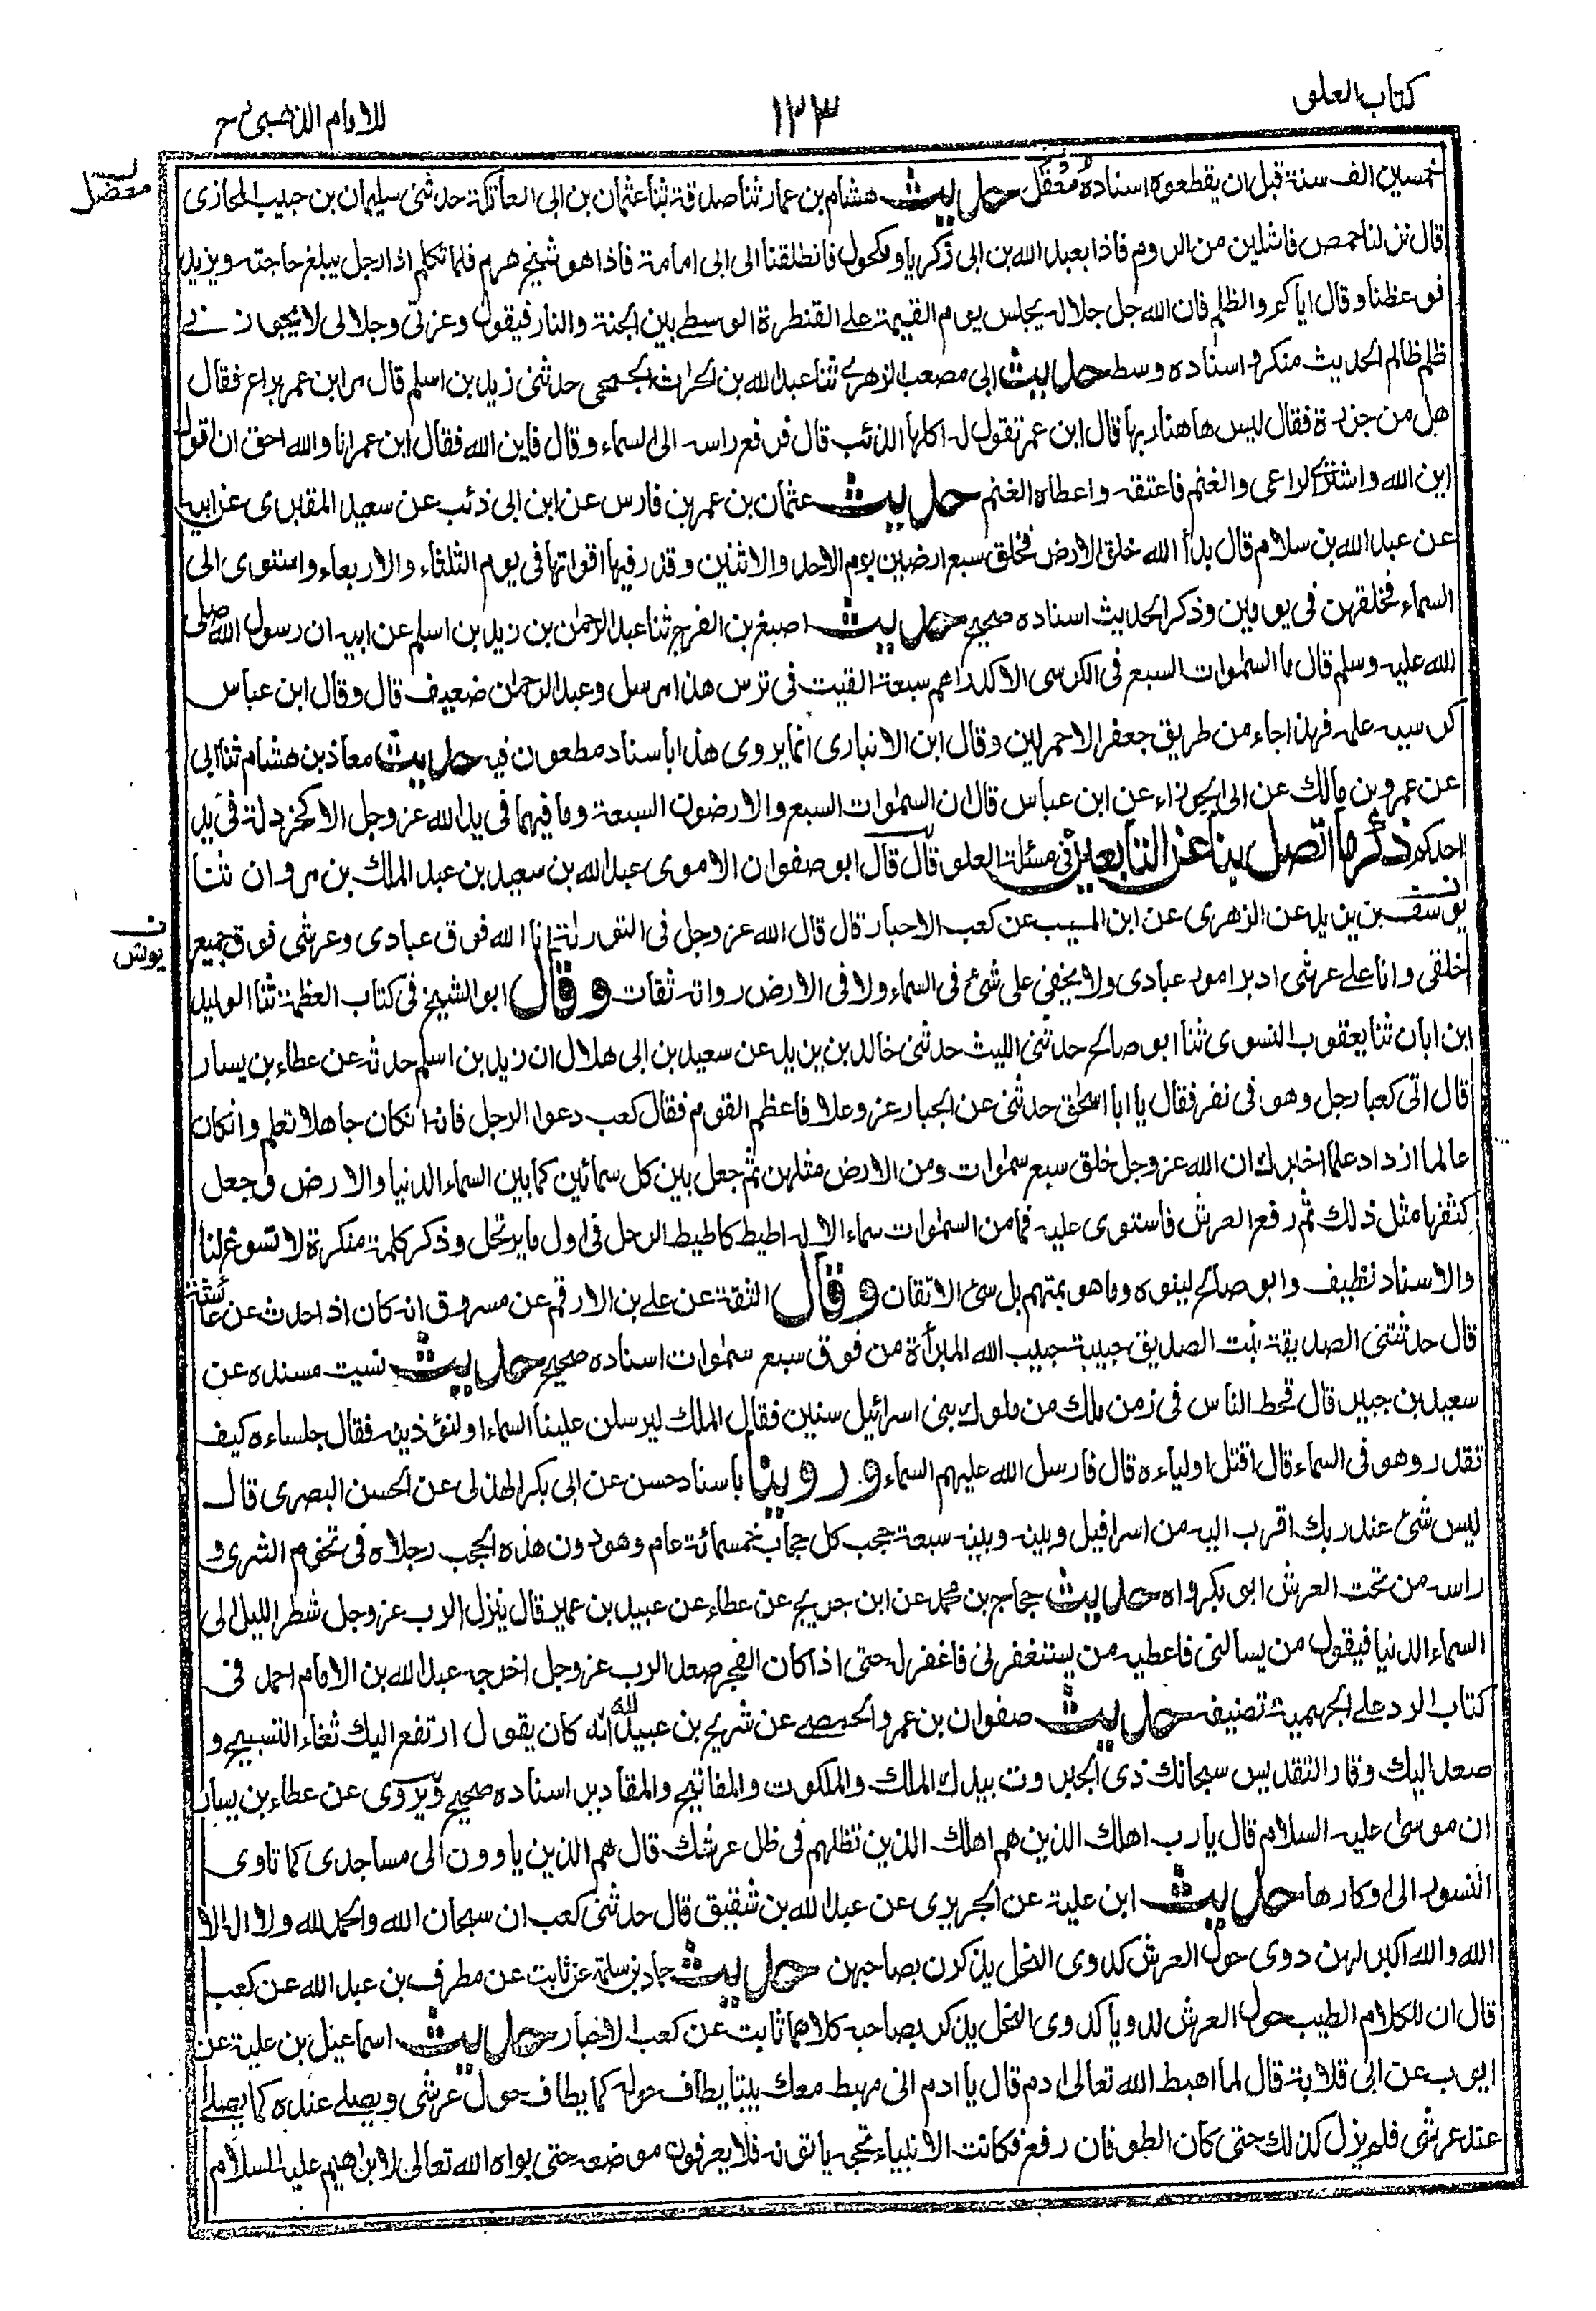 كتاب العلو
١٢٣
للامام الذهبى رح
خمسين الف سنة قبل ان يقطعوه اسناده معضل حديث هشام بن عمار ثنا صدقة ثنا عثمان بن ابى العاتكة حدثنى سليمان بن حبيب المحاربى
معضل
قال نزلنا حمص قافلين من الروم فاذا بعبد الله بن ابى زكريا ومكحول فانطلقنا الى ابى امامة فاذا هو شيخ هرم فلما تكلم اذا رجل يبلغ حاجته ويزيد
فوعظنا وقال اياكم والظلم فان الله جل جلاله يجلس يوم القيمة على القنطرة الوسطى بين الجنة والنار فيقول وعزتى وجلالى لا يجاوزنى
ظلم ظالم الحديث منكر واسناده وسط حديث ابى مصعب الزهرى ثنا عبد الله بن الحراث الجمحى حدثنى زيد بن اسلم قال مر ابن عمر براع فقال
هل من جزرة فقال ليس هاهنا ربها قال ابن عمر تقول له اكلها الذئب قال فرفع راسه الى السماء وقال فاين الله فقال ابن عمر انا والله احق ان اقول
اين الله واشترى الراعى والغنم فاعتقه واعطاه الغنم حديث عثمان بن عمر بن فارس عن ابن ابى ذئب عن سعيد المقبرى عن ابيه
عن عبد الله بن سلام قال بدأ الله خلق الارض فخلق سبع ارضين يوم الاحد والاثنين وقدر فيها اقواتها فى يوم الثلثاء والاربعاء واستوى الى
السماء فخلقهن فى يومين وذكر الحديث اسناده صحيح حديث اصبغ بن الفرج ثنا عبد الرحمن بن زيد بن اسلم عن ابيه ان رسول الله صلى
الله عليه وسلم قال ما السموات السبع فى الكرسى الا كدراهم سبعة القيت فى ترس هذا مرسل وعبد الرحمن ضعيف قال وقال ابن عباس
كرسيه علمه فهذا جاء من طريق جعفر الاحمر لين وقال ابن الانبارى انما يروى هذا باسناد مطعون فيه حديث معاذ بن هشام ثنا ابى
عن عمرو بن مالك عن ابى الجوزاء عن ابن عباس قال ان السموات السبع والارضون السبعة وما فيهما فى يد الله عز وجل الا كخردلة فى يد
احدكم ذكر ما اتصل بنا عن التابعين فى مسئلة العلو قال قال ابو صفوان الاموى عبد الله بن سعيد بن عبد الملك بن مروان ثنا
يوسف بن يزيد عن الزهرى عن ابن المسيب عن كعب الاحبار قال قال الله عز وجل فى التوراة انا الله فوق عبادى وعرشى فوق جميع
ن
يونس
خلقى وانا على عرشى ادبر امور عبادى ولا يخفى على شئ فى السماء ولا فى الارض رواته ثقات وقال ابو الشيخ فى كتاب العظمة ثنا الوليد
ابن ابان ثنا يعقوب النسوى ثنا ابو صالح حدثنى الليث حدثنى خالد بن يزيد عن سعيد بن ابى هلال ان زيد بن اسلم حدثه عن عطاء بن يسار
قال اتى كعبا رجل وهو فى نفر فقال يا ابا اسحق حدثنى عن الجبار عز وعلا فاعظم القوم فقال كعب دعوا الرجل فانه انكان جاهلا تعلم وانكان
عالما ازداد علما اخبرك ان الله عز وجل خلق سبع سموات ومن الارض مثلهن ثم جعل بين كل سمائين كما بين السماء الدنيا والارض وجعل
كثفها مثل ذلك ثم رفع العرش فاستوى عليه فما من السموات سماء الا له اطيط كاطيط الرحل فى اول ما يرتحل وذكر كلمة منكرة لا تسوغ لنا
والاسناد نظيف وابو صالح لينوه وما هو بمتهم بل سئ الاتقان وقال الثقة عن على بن الارقم عن مسروق انه كان اذا حدث عن عائشة
قال حدثتنى الصديقة بنت الصديق حبيبة حبيب الله المبرأة من فوق سبع سموات اسناده صحيح حديث نسيت مسنده عن
سعيد بن جبير قال قحط الناس فى زمن ملك من ملوك بنى اسرائيل سنين فقال الملك ليرسلن علينا السماء او لنؤذينه فقال جلساءه كيف
تقدر وهو فى السماء قال اقتل اولياءه قال فارسل الله عليهم السماء وروينا باسناد حسن عن ابى بكر الهذلى عن الحسن البصرى قال
ليس شئ عند ربك اقرب اليه من اسرافيل وبينه وبينه سبعة حجب كل حجاب خمسمائة عام وهو دون هذه الحجب رجلاه فى تخوم الثرى و
راسه من تحت العرش ابو بكر واه حديث حجاج بن محمد عن ابن جريج عن عطاء عن عبيد بن عمير قال ينزل الرب عز وجل شطر الليل الى
السماء الدنيا فيقول من يسالنى فاعطيه من يستغفرنى فاغفر له حتى اذا كان الفجر صعد الرب عز وجل اخرجه عبد الله بن الامام احمد فى
كتاب الرد على الجهمية تصنيفه حديث صفوان بن عمرو الحمصى عن شريح بن عبيد الله انه كان يقول ارتفع اليك ثغاء التسبيح و
صعد اليك وقار التقديس سبحانك ذى الجبروت بيدك الملك والملكوت والمفاتيح والمقادير اسناده صحيح ويروى عن عطاء بن يسار
ان موسى عليه السلام قال يا رب اهلك الذين هم اهلك الذين تظلهم فى ظل عرشك قال هم الذين ياوون الى مساجدى كما تاوى
النسور الى اوكارها حديث ابن علية عن الجريرى عن عبد الله بن شقيق قال حدثنى كعب ان سبحان الله والحمد لله ولا اله الا
الله والله اكبر لهن دوى حول العرش كدوى النحل يذكرن بصاحبهن حديث حماد بن سلمة عن ثابت عن مطرف بن عبد الله عن كعب
قال ان للكلام الطيب حول العرش لدويا كدوى النحل يذكر بصاحبه كلاهما ثابت عن كعب الاحبار حديث اسماعيل بن علية عن
ايوب عن ابى قلابة قال لما اهبط الله تعالى ادم قال يا ادم انى مهبط معك بيتا يطاف حوله كما يطاف حول عرشى ويصلى عنده كما يصلى
عند عرشى فلم يزل كذلك حتى كان الطوفان رفع فكانت الانبياء تحجه ياتونه فلا يعرفون موضعه حتى بواه الله تعالى لابراهيم عليه السلام